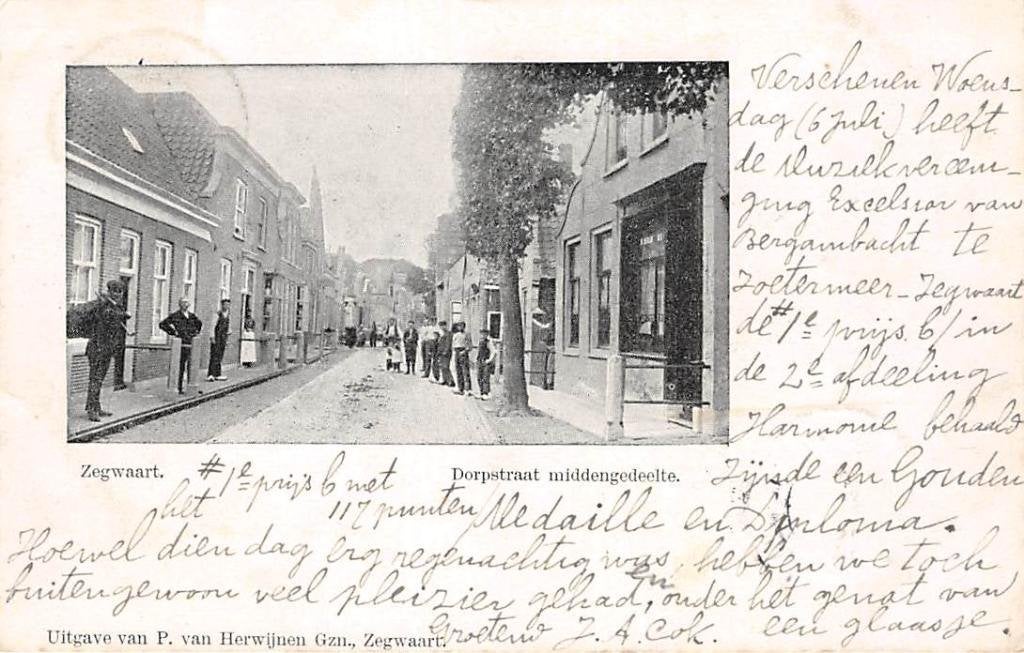 Verschenen Woens-
dag (6 Juli) heeft
de Muziekvereeni-
ging Excelsior van
Bergambacht te
Zoetermeer-Zegwaart
de #1e prijs b/ in
de 2e afdeeling
Harmonie behaald
Zegwaart.
Dorpstraat middengedeelte.
zijnde een Gouden
#1e prijs b met
het 117 punten
Medaille en Diploma.
Hoewel dien dag erg regenachtig was, hebben we toch
buitengewoon veel pleizier gehad, en onder het genot van
Groetend J. A. Cok. een glaasje.
Uitgave van P. van Herwijnen Gzn., Zegwaart.